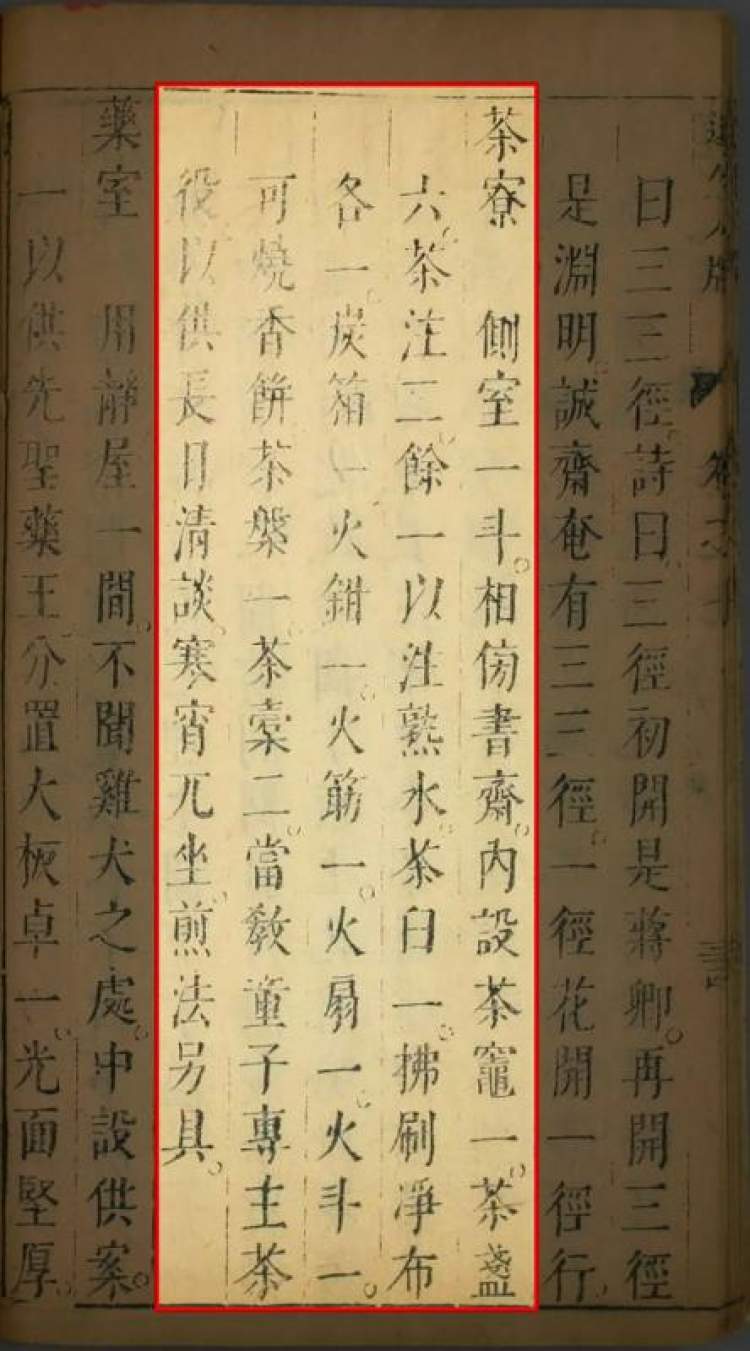 曰三三徑詩曰三徑初開是蔣卿再開三徑
是淵明誠齋奄有三三徑一徑花開一徑行
茶寮　側室一斗相傍書齋內設茶竈一茶盞
六茶注二餘一以注熟水茶臼一拂刷凈布
各一炭箱一火鉗一火筯一火扇一火斗一
可燒香餅茶槃一茶橐二當教童子專主茶
役以供長日清談寒宵兀坐煎法另具
藥室　用靜屋一間不聞雞犬之處中設供案
一以供先聖藥王分置大板卓一光面堅厚